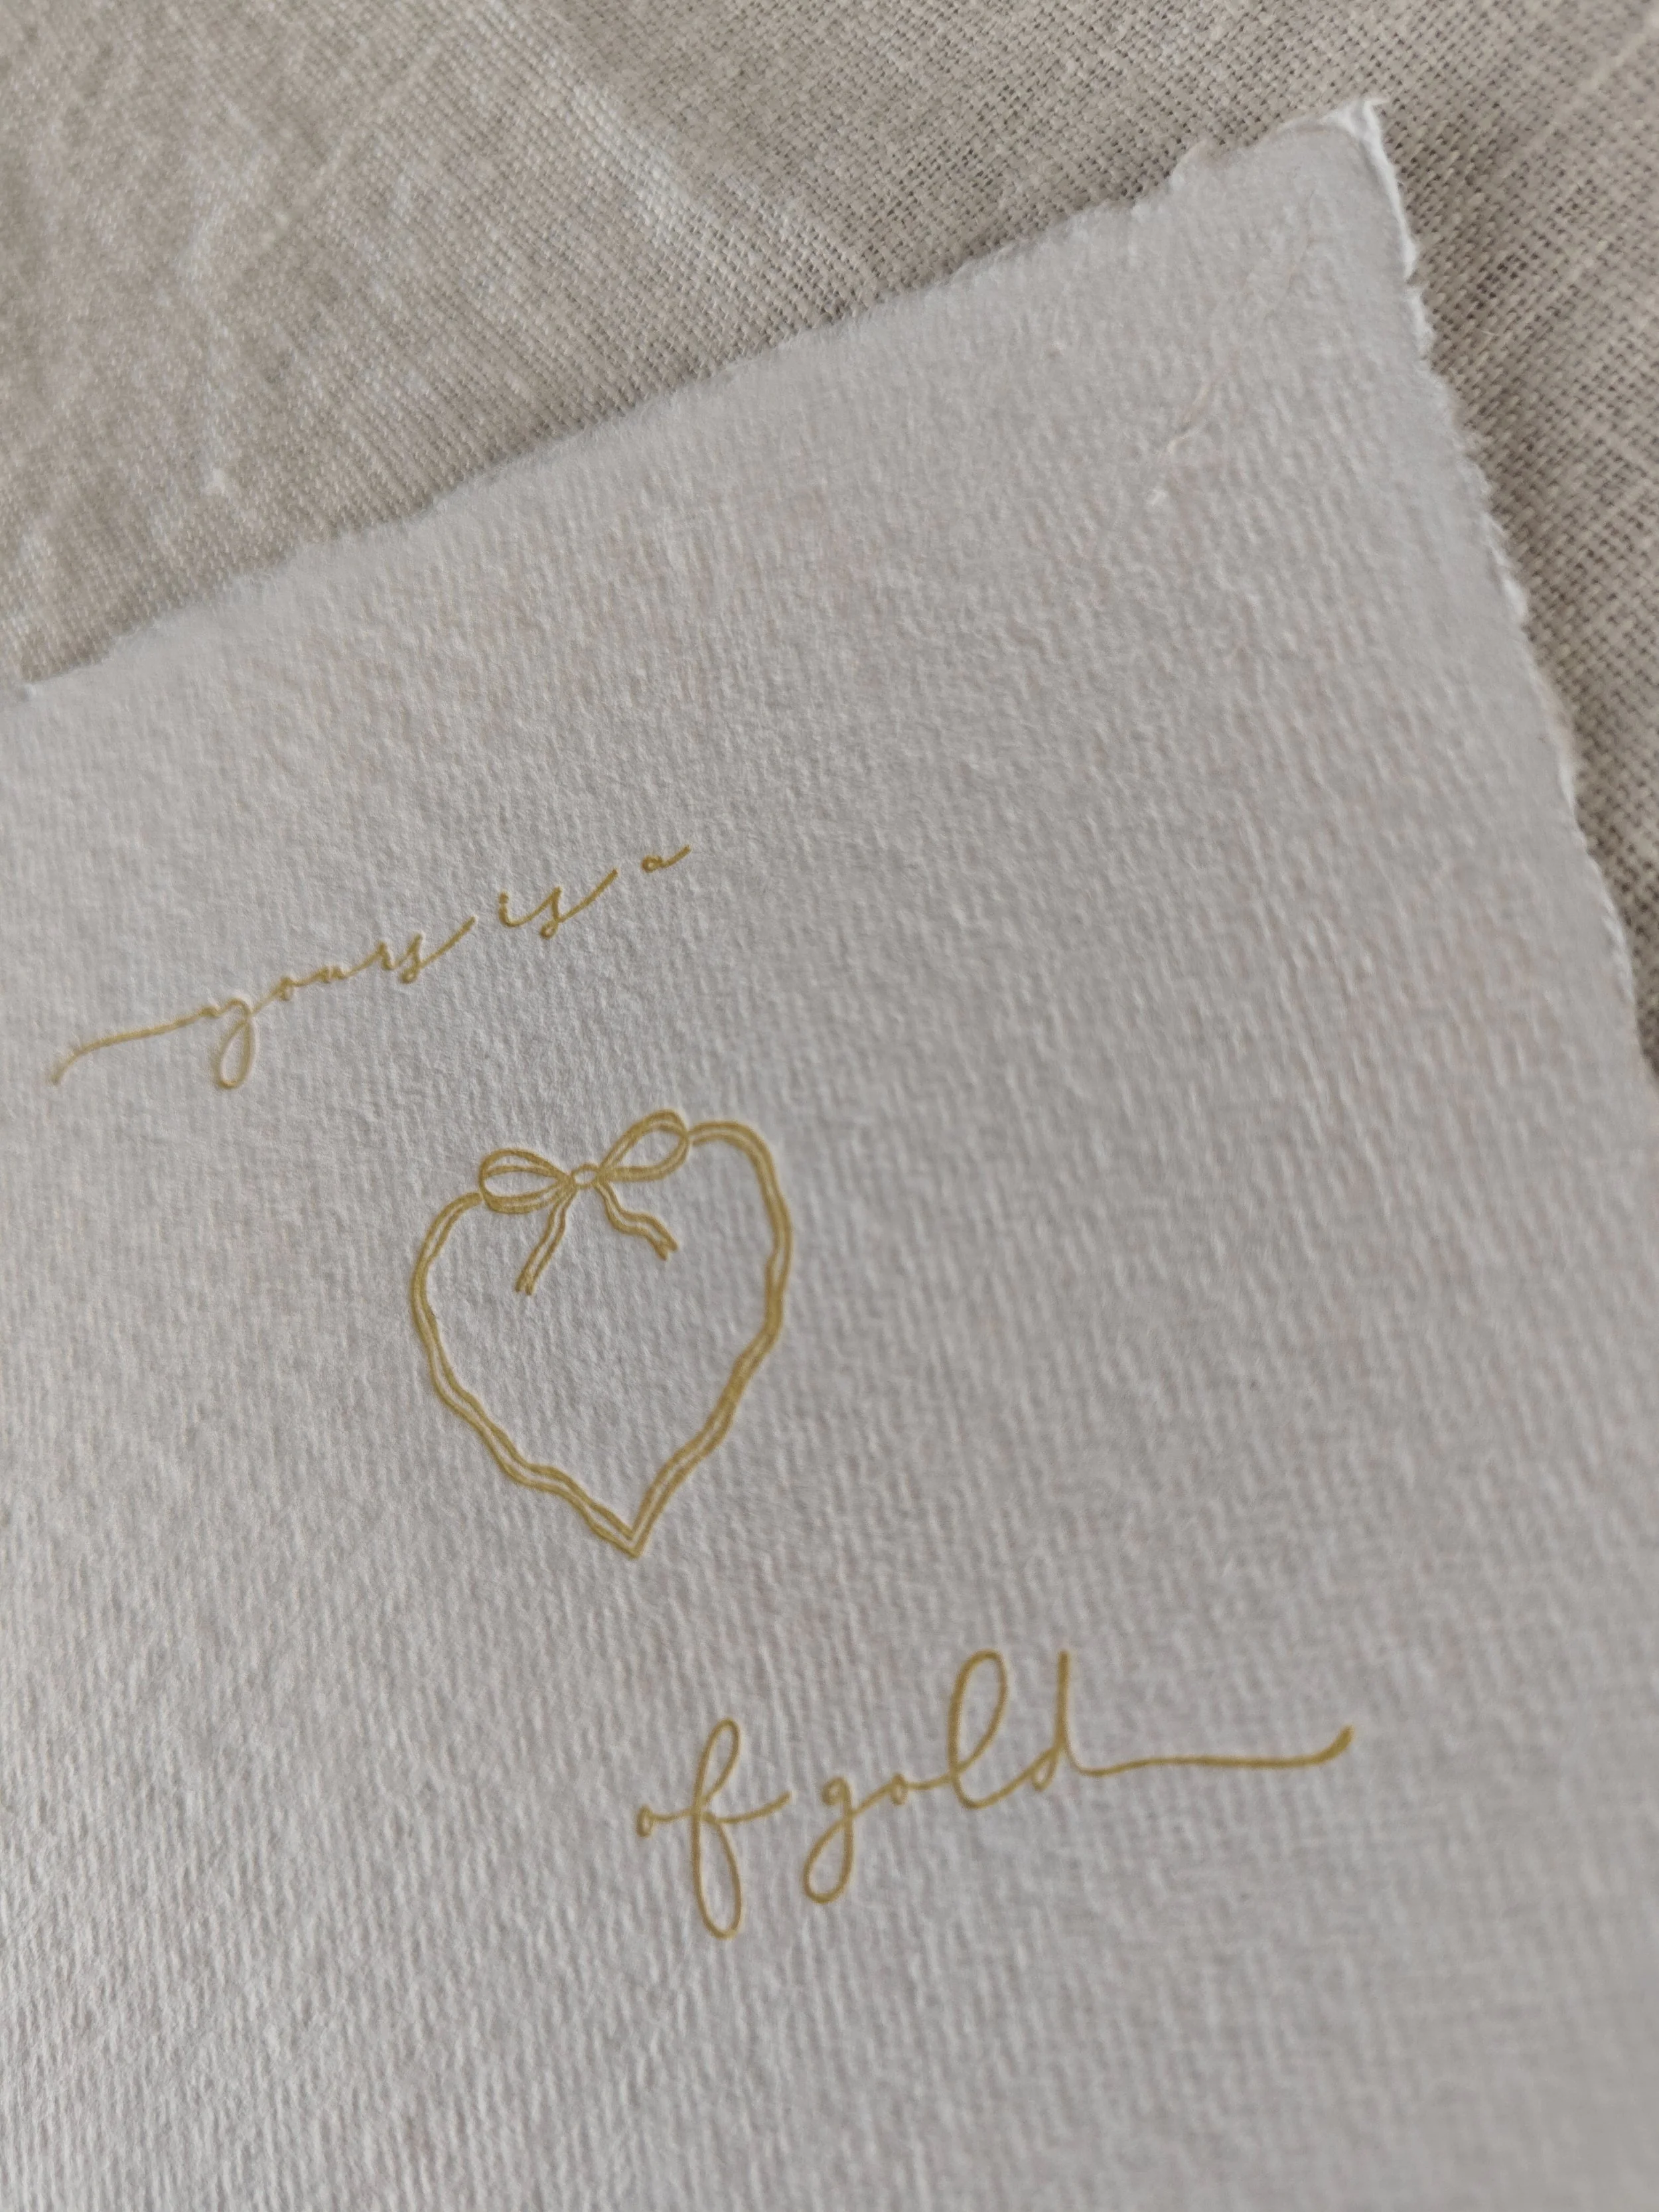 yours is a
of gold